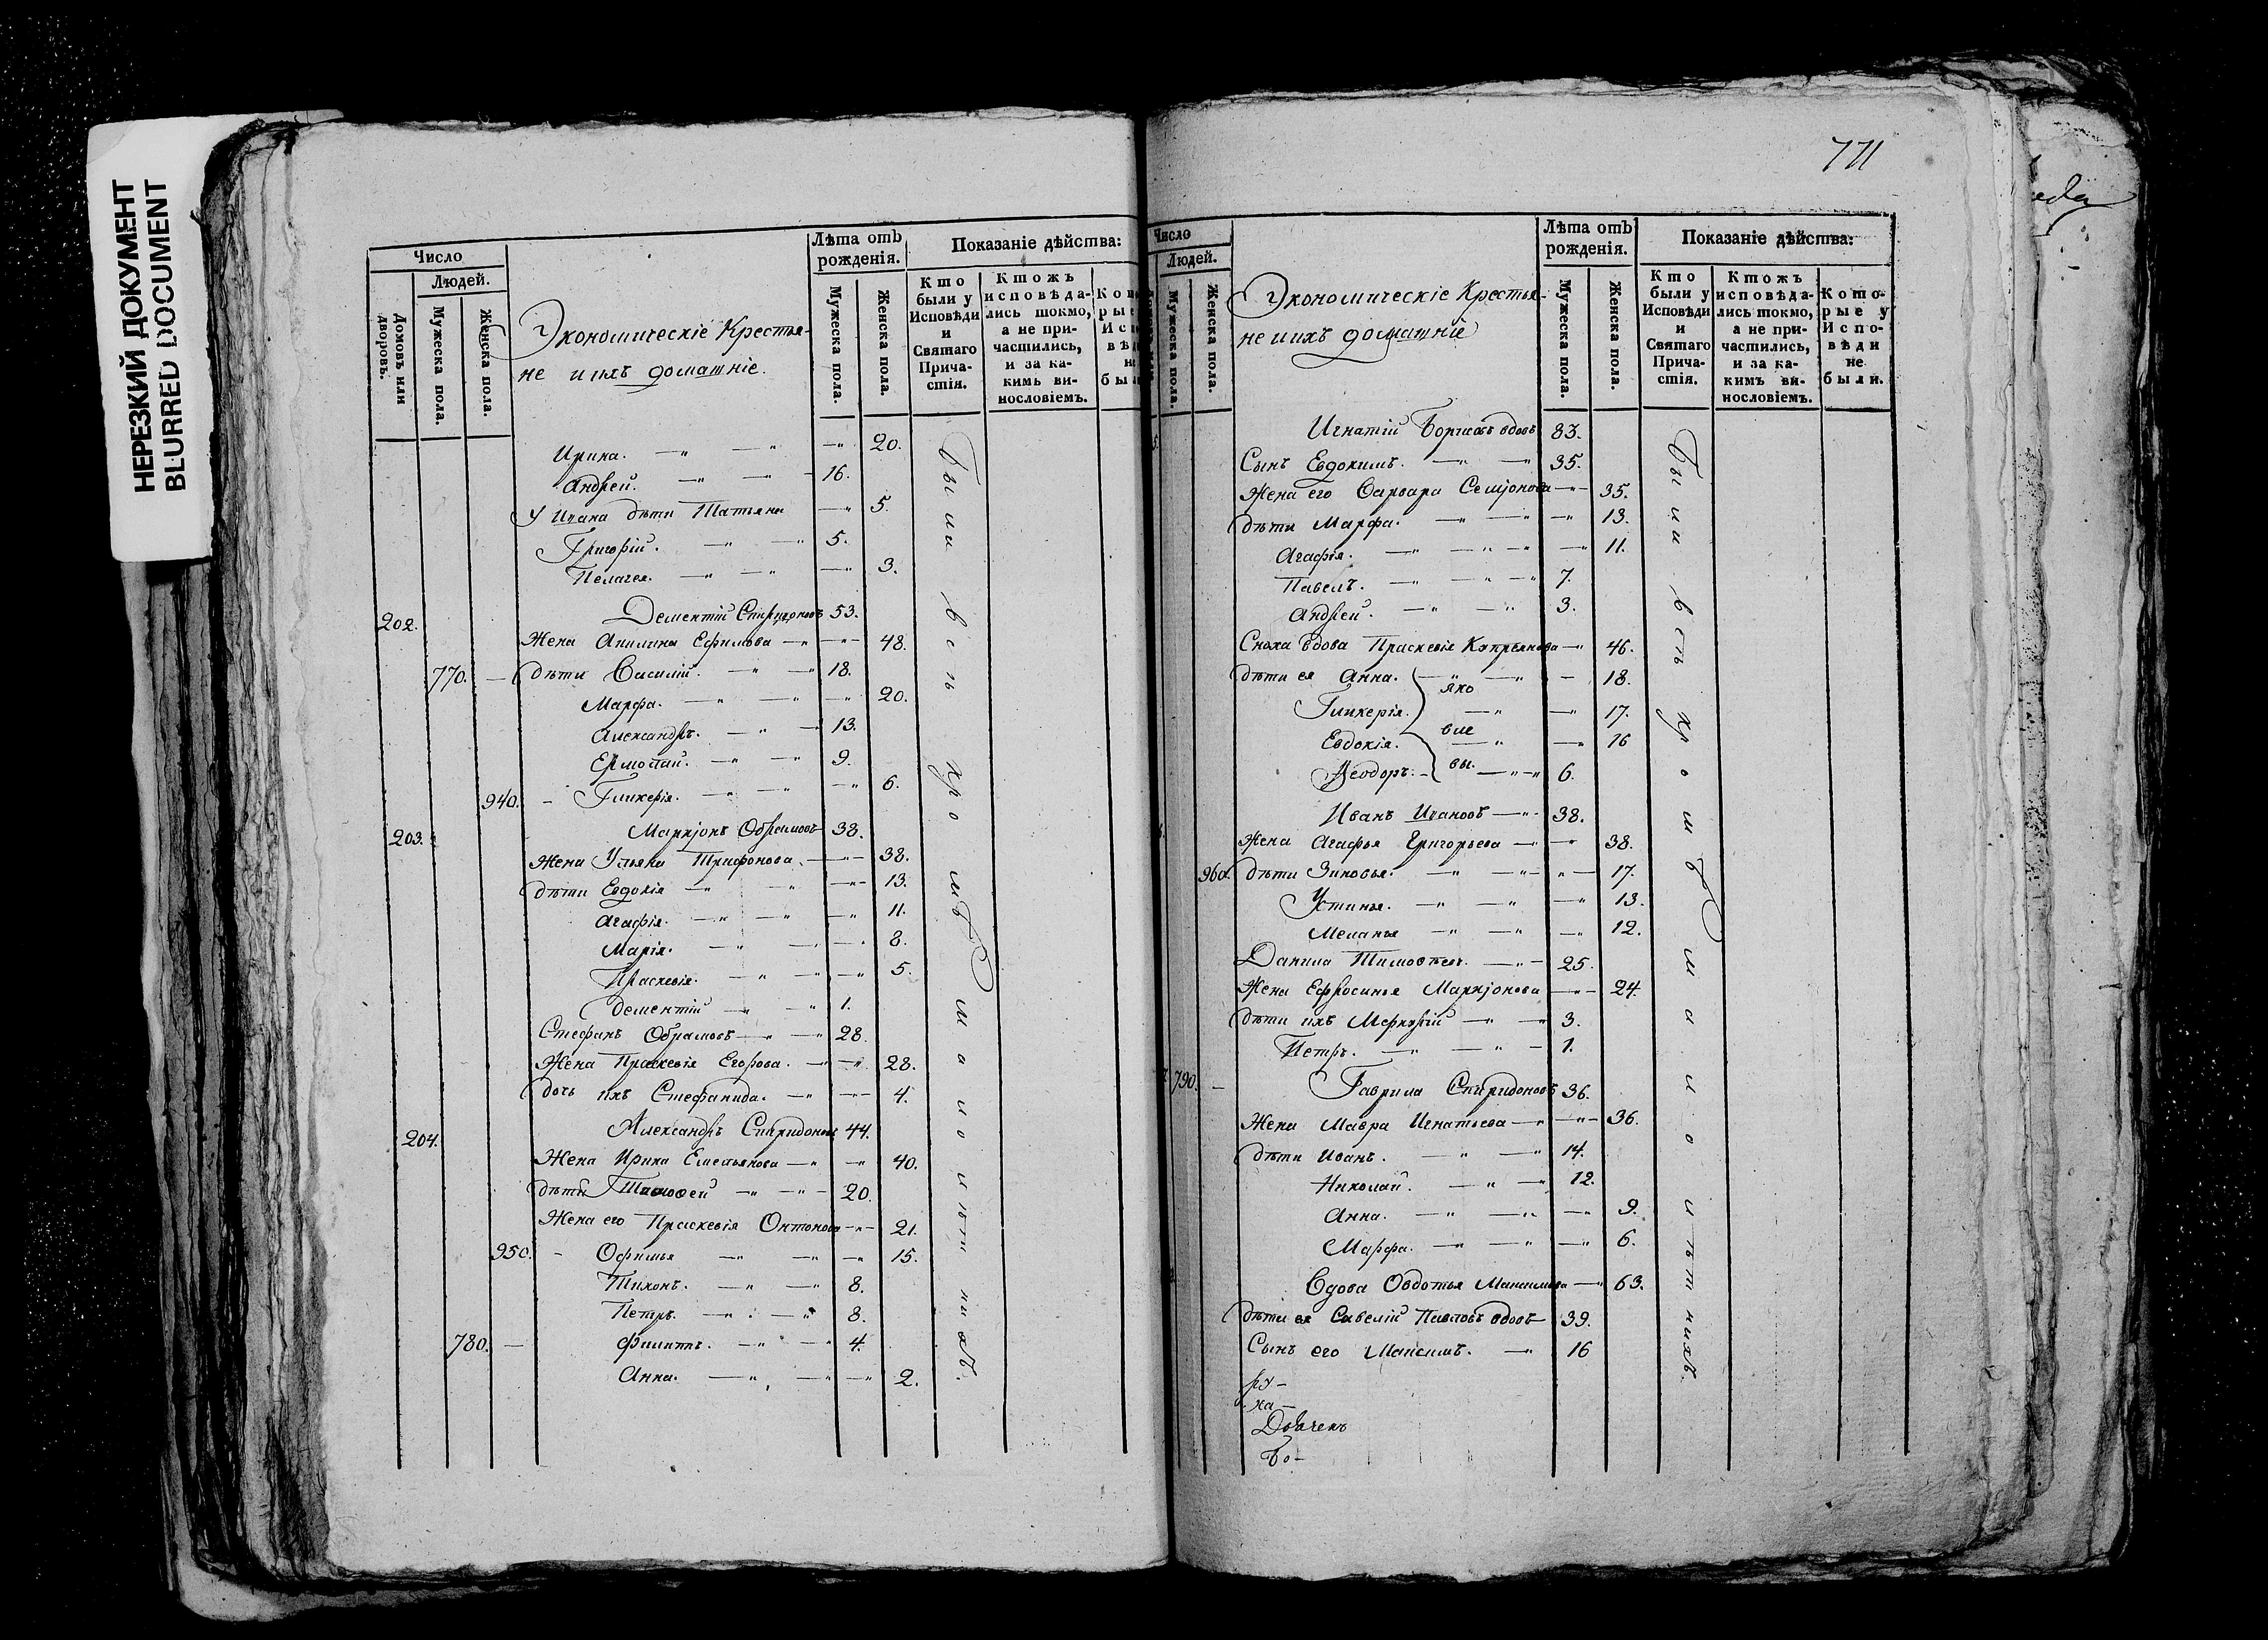 НЕРЕЗКИЙ ДОКУМЕНТ
BLURRED DOCUMENT
Число
Людей.
Домовъ или дворовъ.
Мужеска пола.
Женска пола.
Экономическіе Крестья-
не и ихъ домашніе.
Лѣта отъ рожденія.
Мужеска пола.
Женска пола.
Показаніе дѣйства:
Кто были у Исповѣди и Святаго Прича-стія.
Ктожъ исповѣда-лись токмо, а не при-частились, и за ка-кимъ ви-нословіемъ.
Ирина. 20.
Андрей. 16.
У Ивана дѣти Татьяна 5.
Григорій. 5.
Пелагея. 3.
202. Дементій Спиридоновъ 53.
Жена Акилина Ефимова 48.
770. дѣти Василій. 18.
Марфа. 20.
Александръ. 13.
Ермолай. 9.
940. Гликерія. 6.
203. Маркіонъ Обрамовъ 38.
Жена Ульяна Трифонова. 38.
дѣти Евдокія 13.
Агафія. 11.
Марія. 8.
Праскевія. 5.
Дементій 1.
Стефанъ Обрамовъ 28.
Жена Праскевія Егорова. 28.
дочь ихъ Стефанида. 4.
204. Александръ Спиридоновъ 44.
Жена Ирина Емельянова 40.
дѣти Тимофей 20.
Жена его Праскевія Онтонова 21.
950. Офимья 15.
Тихонъ. 8.
Петръ. 8.
780. Филиппъ. 4.
Анна. 2.
Были всѣ кромѣ малолѣтнихъ.
771
Число
Людей.
Мужеска пола.
Женска пола.
Экономическіе Крестья-
не и ихъ домашніе
Лѣта отъ рожденія.
Мужеска пола.
Женска пола.
Показаніе дѣйства:
Кто были у Исповѣди и Святаго Прича-стія.
Ктожъ исповѣда-лись токмо, а не при-частились, и за ка-кимъ ви-нословіемъ.
Кото-рые у Испо-вѣди не были.
Игнатій Борисовъ вдовъ 83.
Сынъ Евдокимъ. 35.
Жена его Варвара Семіонова 35.
дѣти Марфа. 13.
Агафія. 11.
Павелъ. 7.
Андрей. 3.
Сноха вдова Праскевія Кипреянова 46.
дѣти ея Анна. 18.
Гликерія. 17.
Евдокія. 16
Ѳеодоръ. 6.
Иванъ Ивановъ 38.
Жена Агафья Григорьева 38.
960. дѣти Зиновья. 17.
Устинья. 13.
Меланья 12.
Данила Тимофеевъ. 25.
Жена Ефросинья Маркіонова 24.
дѣти ихъ Меркурій 3.
Петръ. 1.
790. Гаврила Спиридоновъ 36.
Жена Мавра Игнатьева 36.
дѣти Иванъ. 14.
Николай. 12.
Анна. 9.
Марфа. 6.
Вдова Овдотья Максимова 63.
дѣти ея Савелій Павловъ вдовъ 39.
Сынъ его Максимъ. 16
Были всѣ кромѣ малолѣтнихъ.